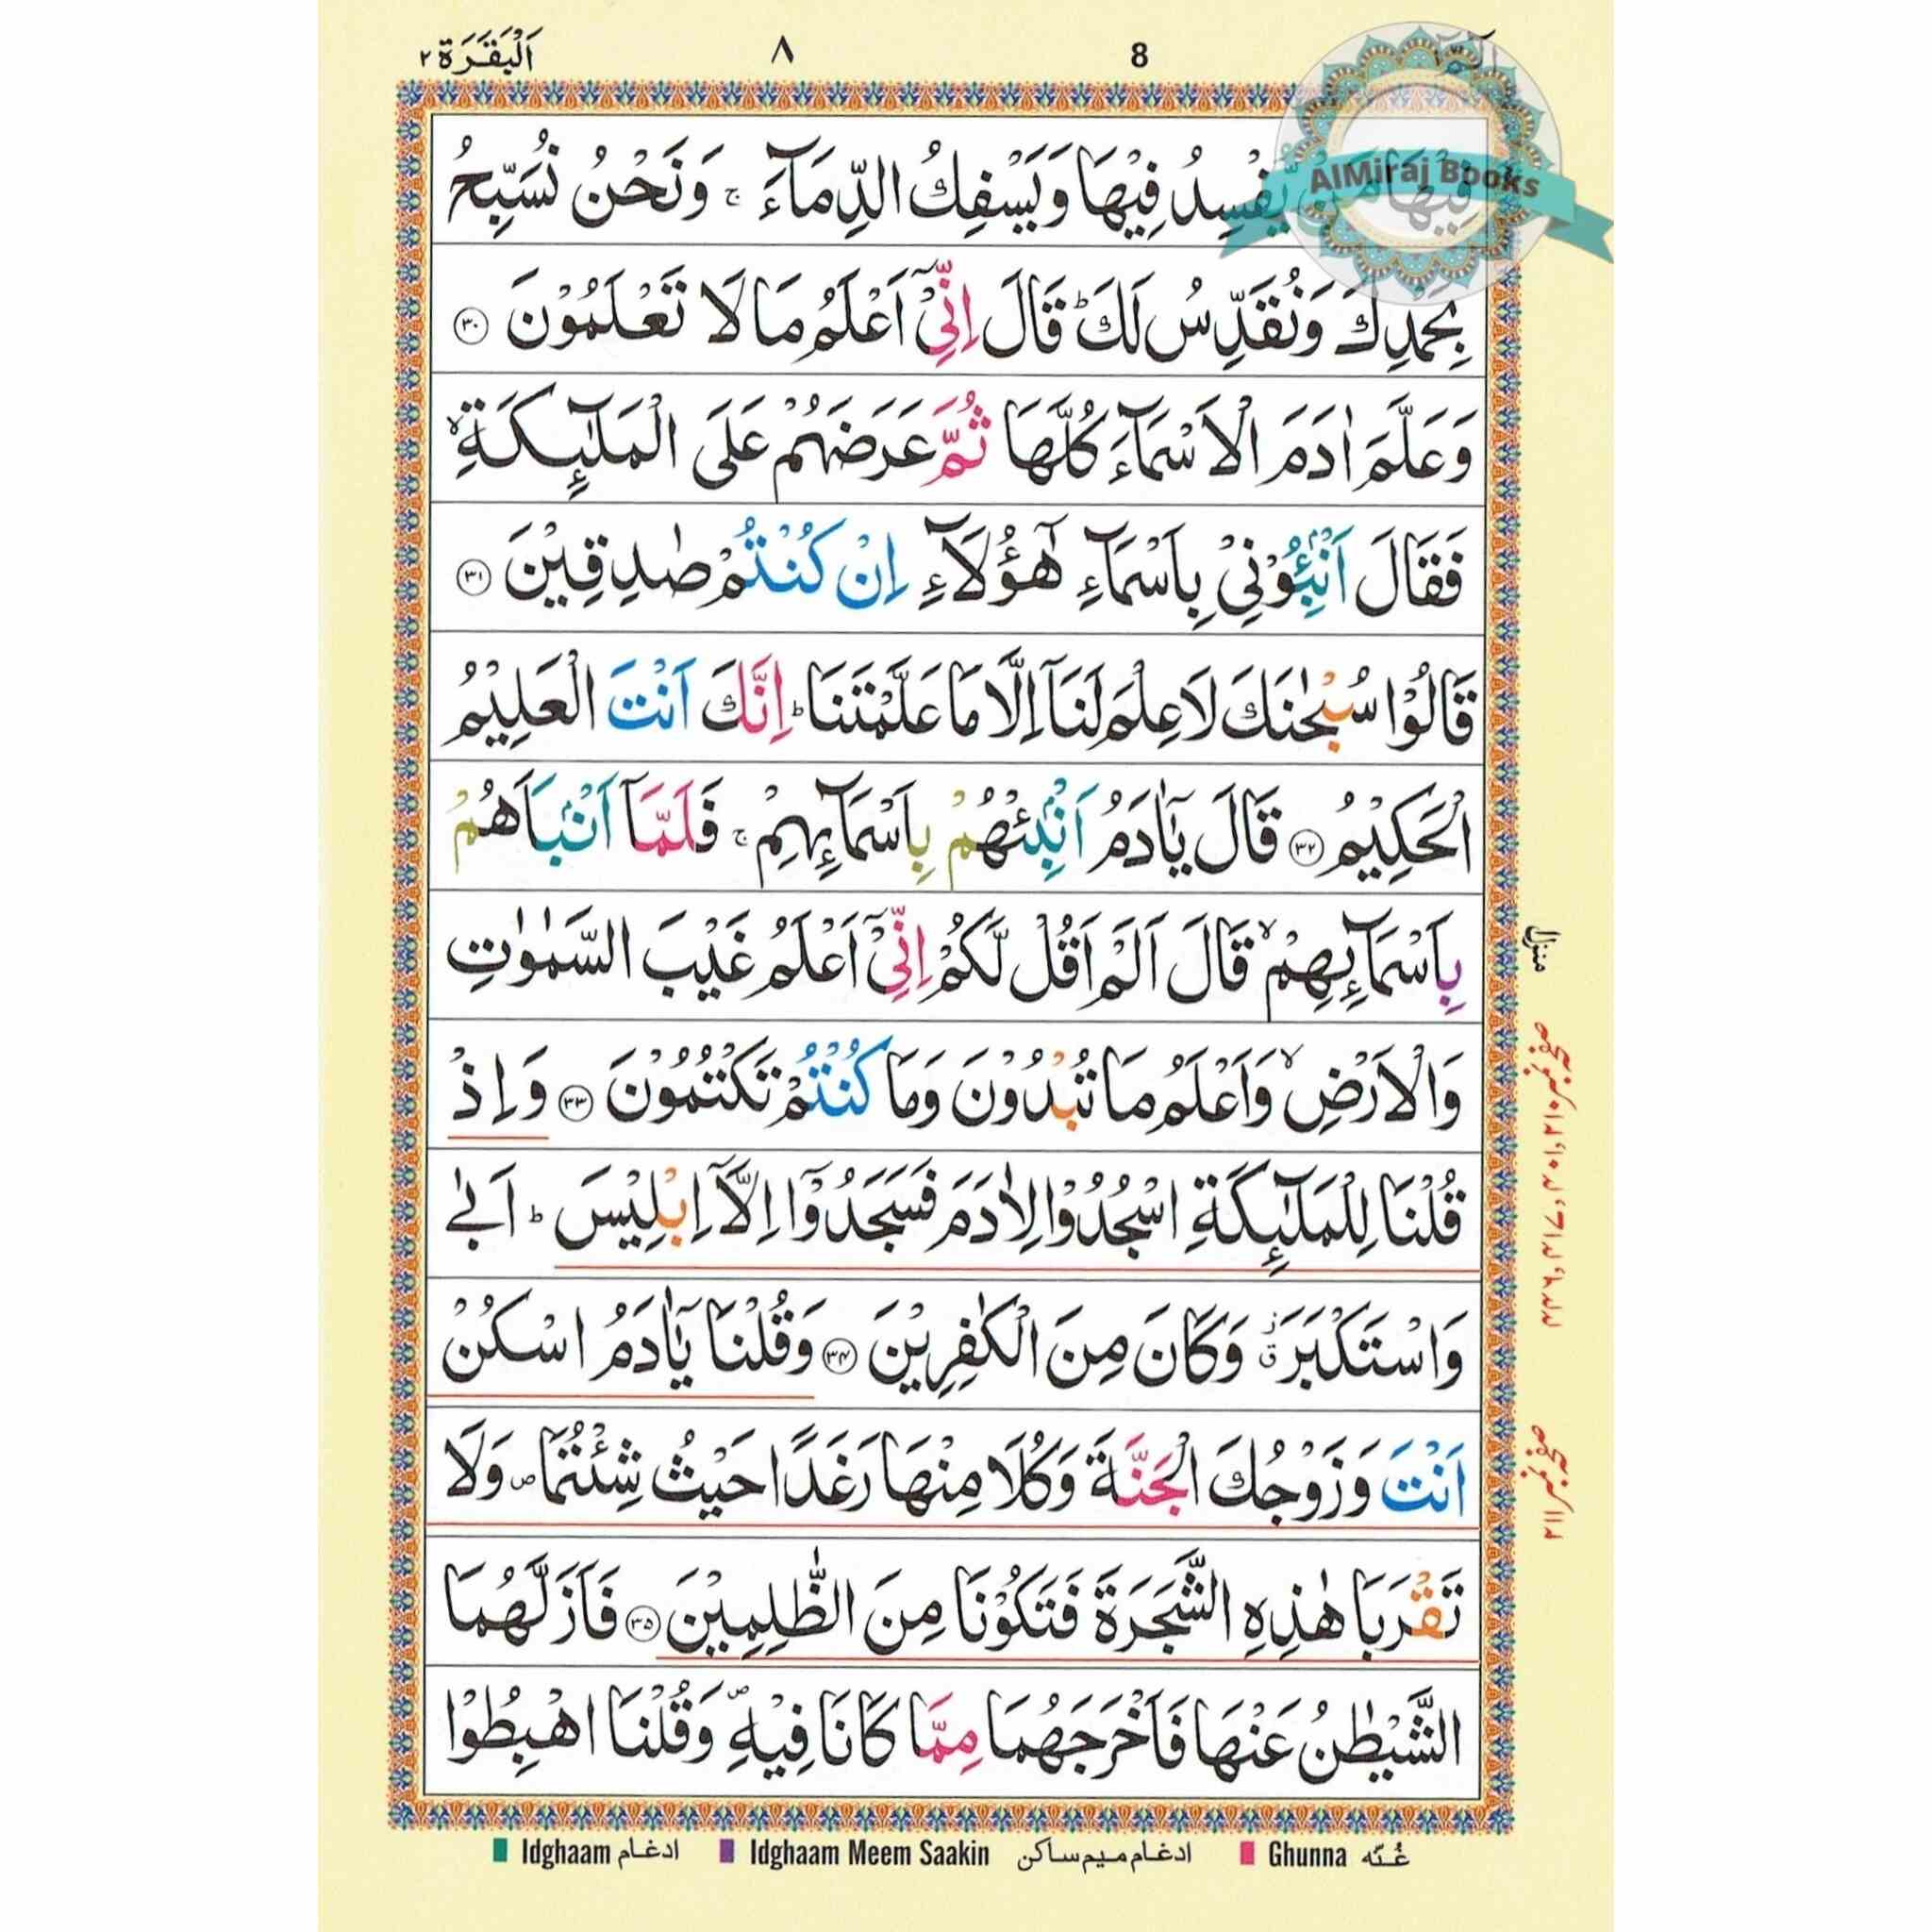 الٓمّٓ ١ 8 ٨ اَلْبَقَرَة ٢
AlMiraj Books
فِيْهَا مَنْ يُّفْسِدُ فِيْهَا وَيَسْفِكُ الدِّمَآءَ ۚ وَنَحْنُ نُسَبِّحُ
بِحَمْدِكَ وَنُقَدِّسُ لَكَ ؕ قَالَ اِنِّيْٓ اَعْلَمُ مَا لَا تَعْلَمُوْنَ ﴿۳۰﴾
وَعَلَّمَ اٰدَمَ الْاَسْمَآءَ كُلَّهَا ثُمَّ عَرَضَهُمْ عَلَى الْمَلٰٓئِكَةِ ۙ
فَقَالَ اَنْۢبِـُٔوْنِيْ بِاَسْمَآءِ هٰٓؤُلَآءِ اِنْ كُنْتُمْ صٰدِقِيْنَ ﴿۳۱﴾
قَالُوْا سُبْحٰنَكَ لَا عِلْمَ لَنَآ اِلَّا مَا عَلَّمْتَنَا ؕ اِنَّكَ اَنْتَ الْعَلِيْمُ
الْحَكِيْمُ ﴿۳۲﴾ قَالَ يٰٓاٰدَمُ اَنْۢبِئْهُمْ بِاَسْمَآئِهِمْ ۚ فَلَمَّآ اَنْۢبَاَهُمْ
بِاَسْمَآئِهِمْ ۙ قَالَ اَلَمْ اَقُلْ لَّكُمْ اِنِّيْٓ اَعْلَمُ غَيْبَ السَّمٰوٰتِ
وَالْاَرْضِ ۙ وَاَعْلَمُ مَا تُبْدُوْنَ وَمَا كُنْتُمْ تَكْتُمُوْنَ ﴿۳۳﴾ وَاِذْ
قُلْنَا لِلْمَلٰٓئِكَةِ اسْجُدُوْا لِاٰدَمَ فَسَجَدُوْٓا اِلَّآ اِبْلِيْسَ ؕ اَبٰى
وَاسْتَكْبَرَ ۗ وَكَانَ مِنَ الْكٰفِرِيْنَ ﴿۳۴﴾ وَقُلْنَا يٰٓاٰدَمُ اسْكُنْ
اَنْتَ وَزَوْجُكَ الْجَنَّةَ وَكُلَا مِنْهَا رَغَدًا حَيْثُ شِئْتُمَا ۪ وَلَا
تَقْرَبَا هٰذِهِ الشَّجَرَةَ فَتَكُوْنَا مِنَ الظّٰلِمِيْنَ ﴿۳۵﴾ فَاَزَلَّهُمَا
الشَّيْطٰنُ عَنْهَا فَاَخْرَجَهُمَا مِمَّا كَانَا فِيْهِ ۪ وَقُلْنَا اهْبِطُوْا
منزل
Idghaam ادغام Idghaam Meem Saakin ادغام ميم ساكن Ghunna غُنّه